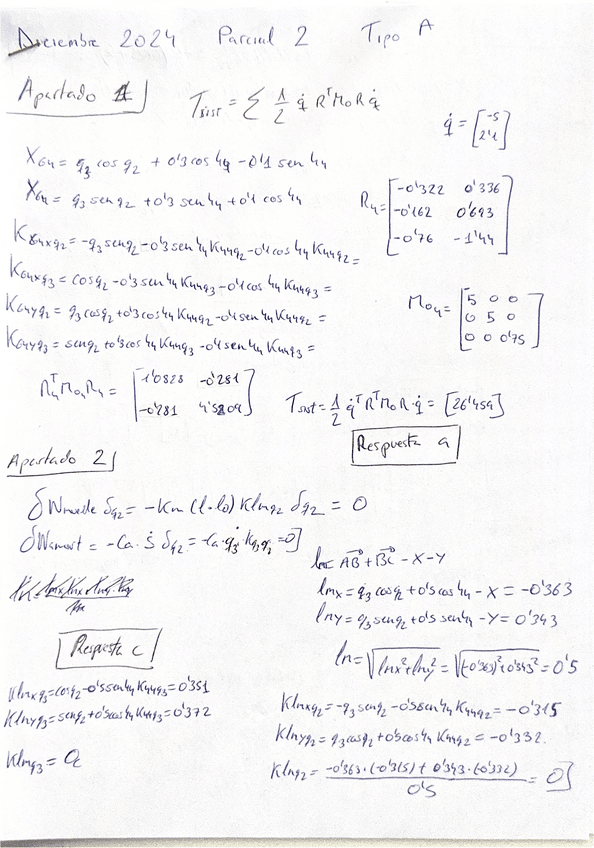 Diciembre 2024 Parcial 2 Tipo A
Apartado 1
T_sist = Σ 1/2 q̇ R^T M_0 R q̇
q̇ = [-5 2'1]
X_G4 = q_3 cos q_2 + 0'3 cos φ_4 - 0'1 sen φ_4
X_G4 = q_3 sen q_2 + 0'3 sen φ_4 + 0'1 cos φ_4
R_4 = [-0'322 0'336
-0'162 0'693
-0'76 -1'44]
K_G4xq2 = -q_3 sen q_2 - 0'3 sen φ_4 K_φ4q2 - 0'1 cos φ_4 K_φ4q2 =
K_G4xq3 = cos q_2 - 0'3 sen φ_4 K_φ4q3 - 0'1 cos φ_4 K_φ4q3 =
K_G4yq2 = q_3 cos q_2 + 0'3 cos φ_4 K_φ4q2 - 0'1 sen φ_4 K_φ4q2 =
K_G4yq3 = sen q_2 + 0'3 cos φ_4 K_φ4q3 - 0'1 sen φ_4 K_φ4q3 =
M_04 = [5 0 0
0 5 0
0 0 0'75]
R_4^T M_04 R_4 = [1'0828 -0'281
-0'281 4'5209]
T_sist = 1/2 q̇^T R^T M_0 R q̇ = [26'459]
Respuesta a
Apartado 2
δW_muelle δq_2 = -K_m (l-l_0) K_lmq2 δq_2 = 0
δW_amort = -C_a · ṡ δq_2 = -C_a · q̇_3 · K_q3q2 = 0
l_m = AB + BC - X - Y
l_mx = q_3 cos q_2 + 0'5 cos φ_4 - X = -0'363
l_my = q_3 sen q_2 + 0'5 sen φ_4 - Y = 0'343
Respuesta c
l_m = √(l_mx² + l_my²) = √((-0'363)² + 0'343²) = 0'5
K_lmxq3 = cos q_2 - 0'5 sen φ_4 K_φ4q3 = 0'351
K_lmyq3 = sen q_2 + 0'5 cos φ_4 K_φ4q3 = 0'372
K_lmq3 = 0
K_lmxq2 = -q_3 sen q_2 - 0'5 sen φ_4 K_φ4q2 = -0'315
K_lmyq2 = q_3 cos q_2 + 0'5 cos φ_4 K_φ4q2 = -0'332.
K_lmq2 = (-0'363 · (-0'315) + 0'343 · (-0'332)) / 0'5 = 0